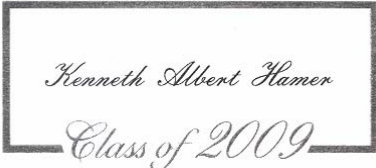 Kenneth Albert Hamer
Class of 2009